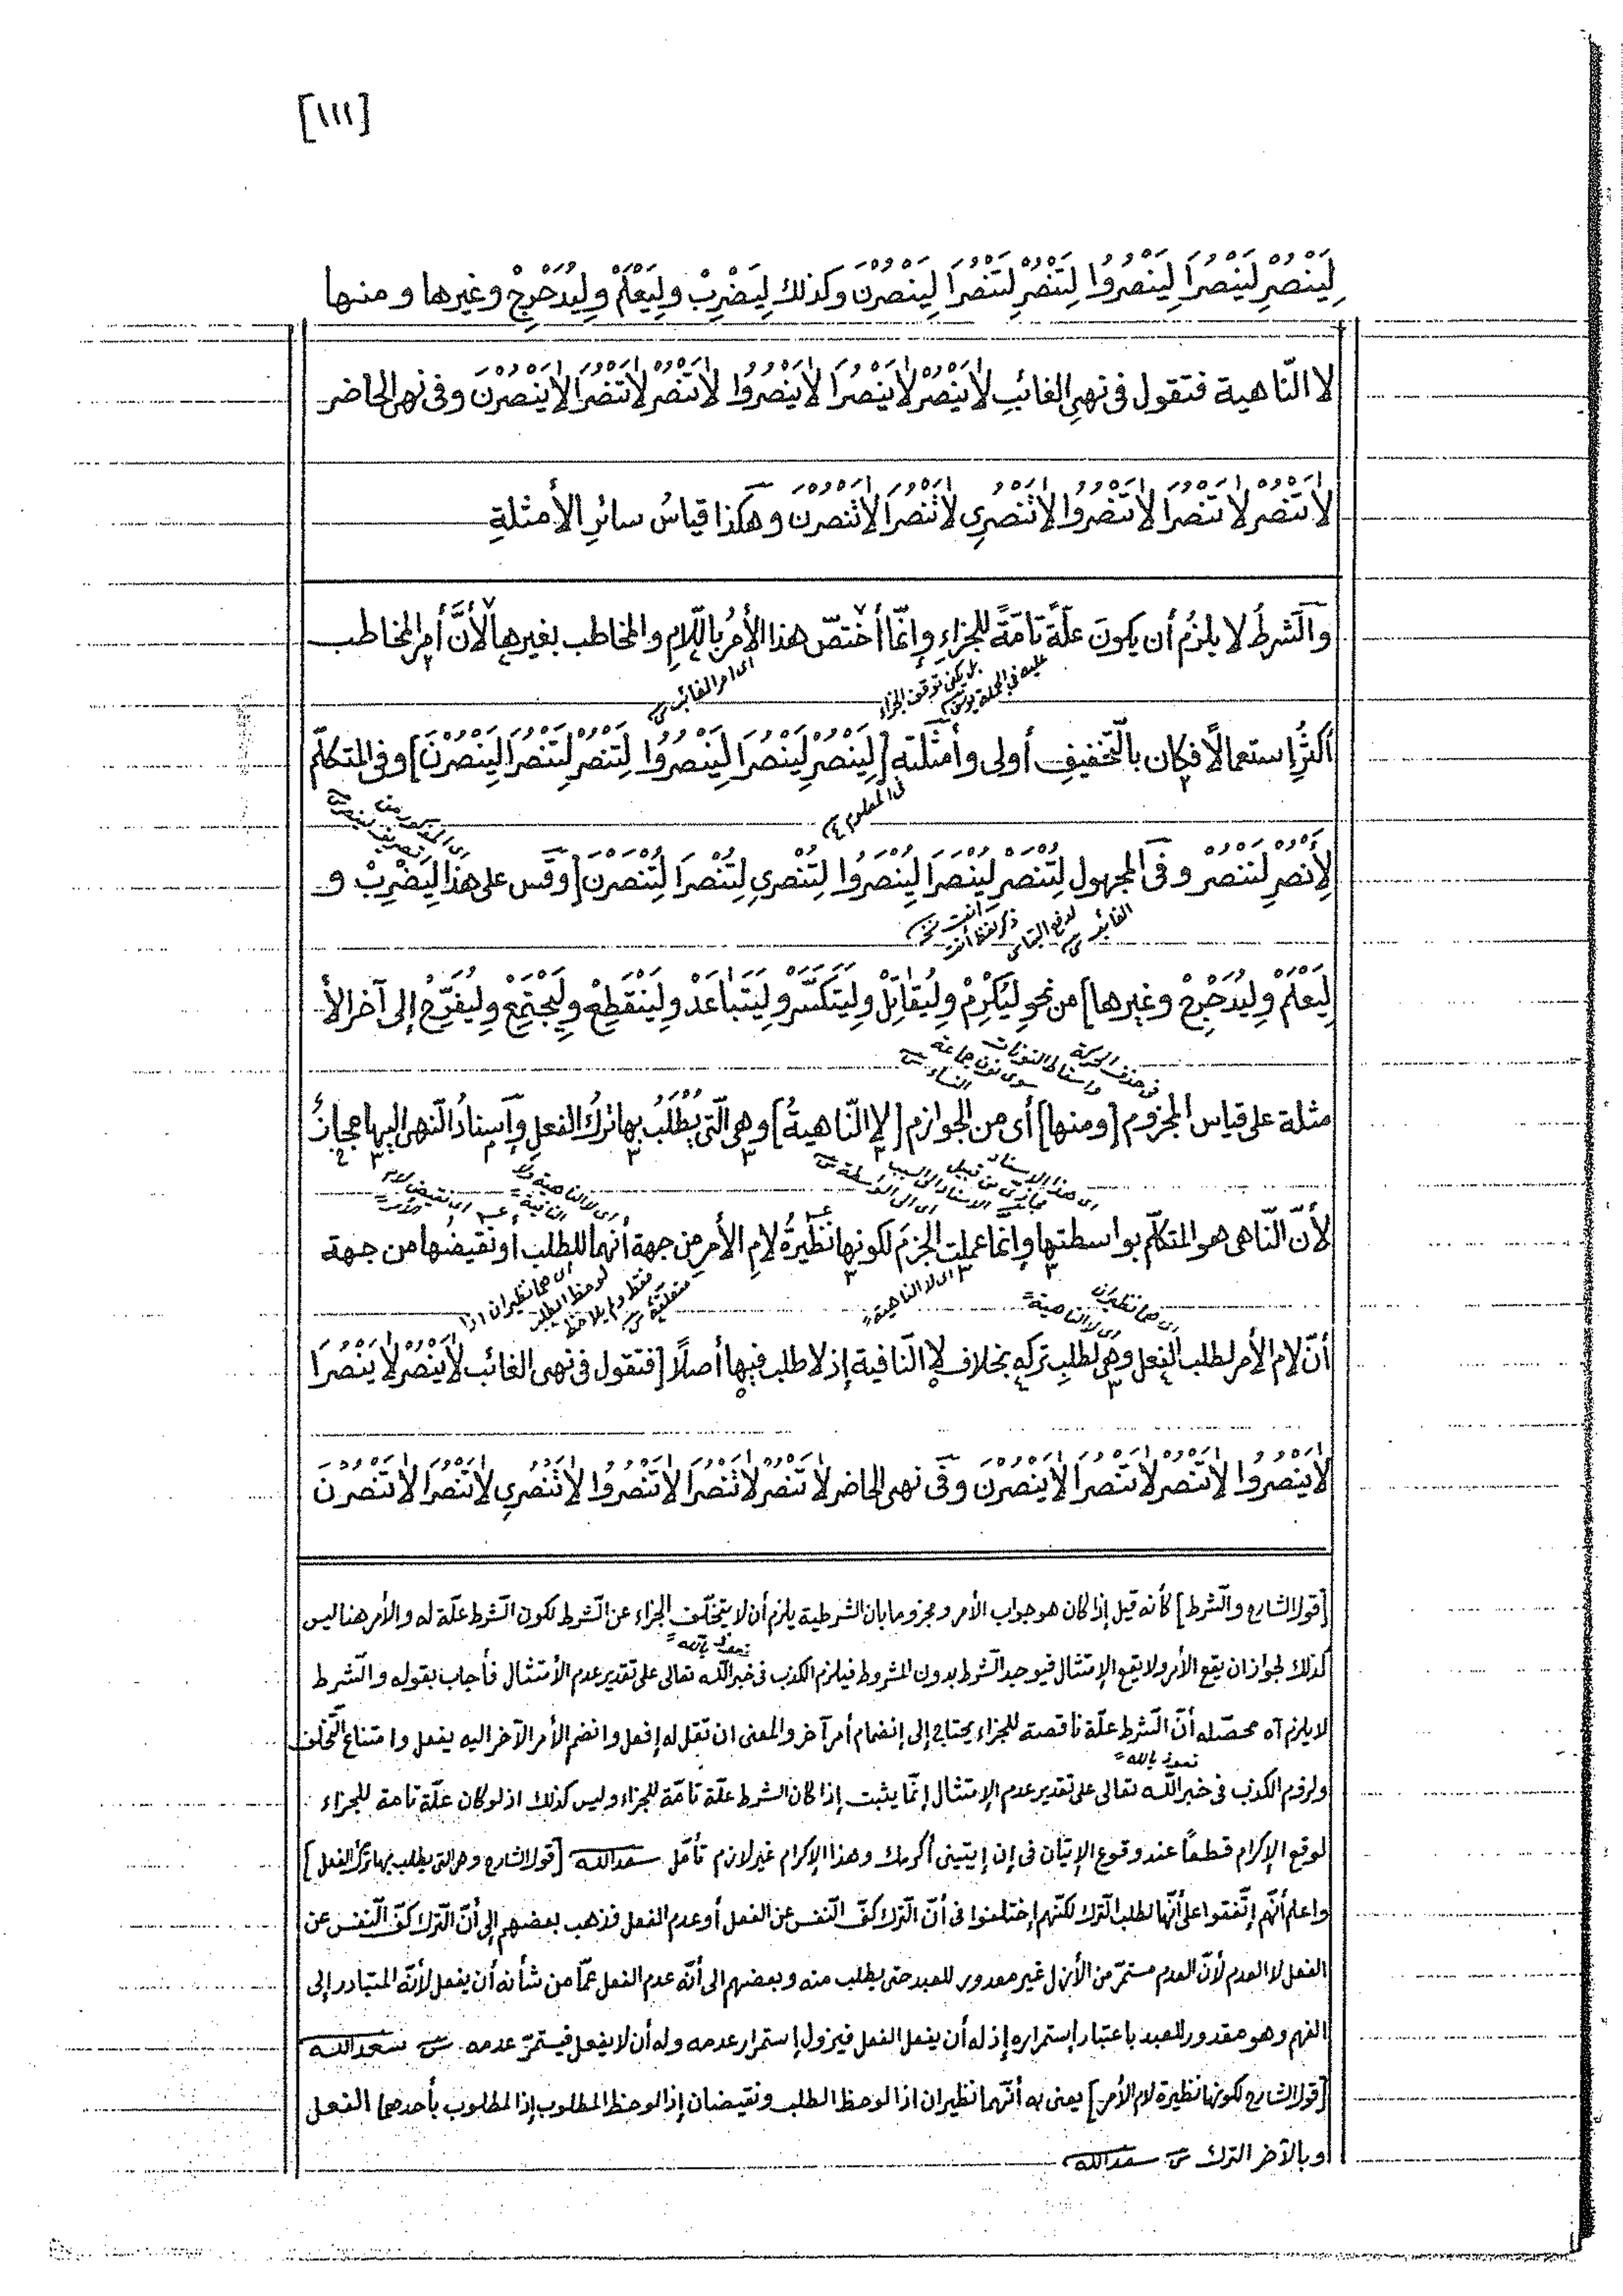 [١١١]
لِيَنْصُرْ لِيَنْصُرَا لِيَنْصُرُوا لِتَنْصُرْ لِتَنْصُرَا لِيَنْصُرْنَ وكذلك لِيَضْرِبْ ولِيَعْلَمْ ولِيُدَحْرِجْ وغيرها ومنها
لا النّاهية فتقول فى نهىِ الغائبِ لٰايَنْصُرْ لٰايَنْصُرَا لٰايَنْصُرُوا لٰاتَنْصُرْ لٰاتَنْصُرَا لٰايَنْصُرْنَ وفى نهى الحاضر
لٰاتَنْصُرْ لٰاتَنْصُرَا لٰاتَنْصُرُوا لٰاتَنْصُرِى لٰاتَنْصُرَا لٰاتَنْصُرْنَ وهكذا قياسُ سائرِ الأمثلةِ
والّشرطُ لا يلزمُ أن يكونَ علّةً تامّةً للجزاءِ وإنّما أختصّ هذا الأمرُ باللّامِ والمخاطب بغيرها لأنَّ أمر المخاطب
اى امر الغائب
بل يكفى توقف الجزاء
عليه فى الجملة
أكثرُ إستعمالًا فكان بالتّخفيفِ أولى وأمثلته [لِيَنْصُرْ لِيَنْصُرَا لِيَنْصُرُوا لِتَنْصُرْ لِتَنْصُرَا لِيَنْصُرْنَ] وفى المتكلّم
فى المعلوم
اى المذكور من
تصريف لينصر
لِأَنْصُرْ لِنَنْصُرْ وفى المجهول لِتُنْصَرْ لِيُنْصَرَا لِيُنْصَرُوا لِتُنْصَرِى لِتُنْصَرَا لِتُنْصَرْنَ [وقس على هذا لِيَضْرِبْ و
لِيَعْلَمْ ولِيُدَحْرِجْ وغيرها] من نحوِ لِيُكْرِمْ ولِيُقاتِلْ ولِيَتَكَسَّرْ ولِيَتَباعَدْ ولِيَنْقَطِعْ ولِيَجْتَمِعْ ولِيُفَرِّحْ إلى آخر الأ
فى حذف الحركة
واسقاط النونات
سوى نون جماعة
النساء
مثلة على قياس المجزوم [ومنها] أى من الجوازم [لا النّاهيةُ] وهى الّتى يُطْلَبُ بها تركُ الفعلِ وإسنادُ النّهى اليها مجازٌ
اى هذا الاسناد
مجازىّ من قبيل
الاسناد الى السبب
لأنّ النّاهى هو المتكلّم بواسطتها وإنّما عملت الجزمَ لكونها نظيرةُ لامِ الأمرِ من جهة أنّهما للطلب أو نقيضُها من جهة
اى هما نظيران
اى لا الناهية
اى لا الناهية
اى هما نظيران اذا
لوحظ الطلب
فقط ولم يلاحظ
أنّ لام الأمر لطلب الفعل وهى لطلبِ تركه بخلاف لا النّافية إذ لا طلب فيها أصلًا [فتقول فى نهى الغائب لٰايَنْصُرْ لٰايَنْصُرَا
لٰايَنْصُرُوا لٰاتَنْصُرْ لٰاتَنْصُرَا لٰايَنْصُرْنَ وفى نهى الحاضر لٰاتَنْصُرْ لٰاتَنْصُرَا لٰاتَنْصُرُوا لٰاتَنْصُرِى لٰاتَنْصُرَا لٰاتَنْصُرْنَ
[قول الشارح والّشرط] كأنه قيل إذا كان هو جواب الأمر ومجزوما بان الشرطية يلزم أن لا يتخلّف الجزاء عن الّشرط لكون الّشرط علّة له والأمر هنا ليس
كذلك لجواز ان يقع الأمر ولا يقع الإمتثال فيوجد الّشرط بدون المشروط فيلزم الكذب فى خبر الله تعالى على تقدير عدم الأمتثال فأجاب بقوله والّشرط
نعوذ بالله
لا يلزم آه محصّله أنّ الّشرط علّة ناقصة للجزاء يحتاج إلى إنضمام أمر آخر والمعنى ان تقل له إفعل وانضم الأمر الآخر اليه يفعل وامتناع الّتخلف
نعوذ بالله
ولزوم الكذب فى خبر الله تعالى على تقدير عدم الإمتثال إنّما يثبت إذا كان الشرط علّة تامّة للجزاء وليس كذلك اذ لو كان علّة تامة للجزاء
لوقع الإكرام قطعاً عند وقوع الإتيان فى إن إيتينى أكرمك وهذا الإكرام غير لازم تأمّل سعد الله [قول الشارح وهى التى يطلب بها ترك الفعل]
واعلم أنّهم إتّفقوا على أنّها لطلب الّترك لكنّهم إختلفوا فى أنّ الّترك كفّ الّنفس عن الفعل أو عدم الفعل فذهب بعضهم إلى أنّ الّترك كفّ الّنفس عن
الفعل لا العدم لأنّ العدم مستمرّ من الأزل غير مقدور للعبد حتى يطلب منه وبعضهم الى أنّه عدم الفعل عمّا من شأنه أن يفعل لأنّه المتبادر إلى
الفهم وهو مقدور للعبد باعتبار إستمراره إذ له أن يفعل الفعل فيزول إستمرار عدمه وله أن لا يفعل فيستمرّ عدمه سعد الله
[قول الشارح لكونها نظيرة لام الأمر] يعنى به أنّهما نظيران اذا لوحظ الطلب ونقيضان إذا لوحظ المطلوب إذ المطلوب بأحدهما الفعل
وبالآخر الترك سعد الله